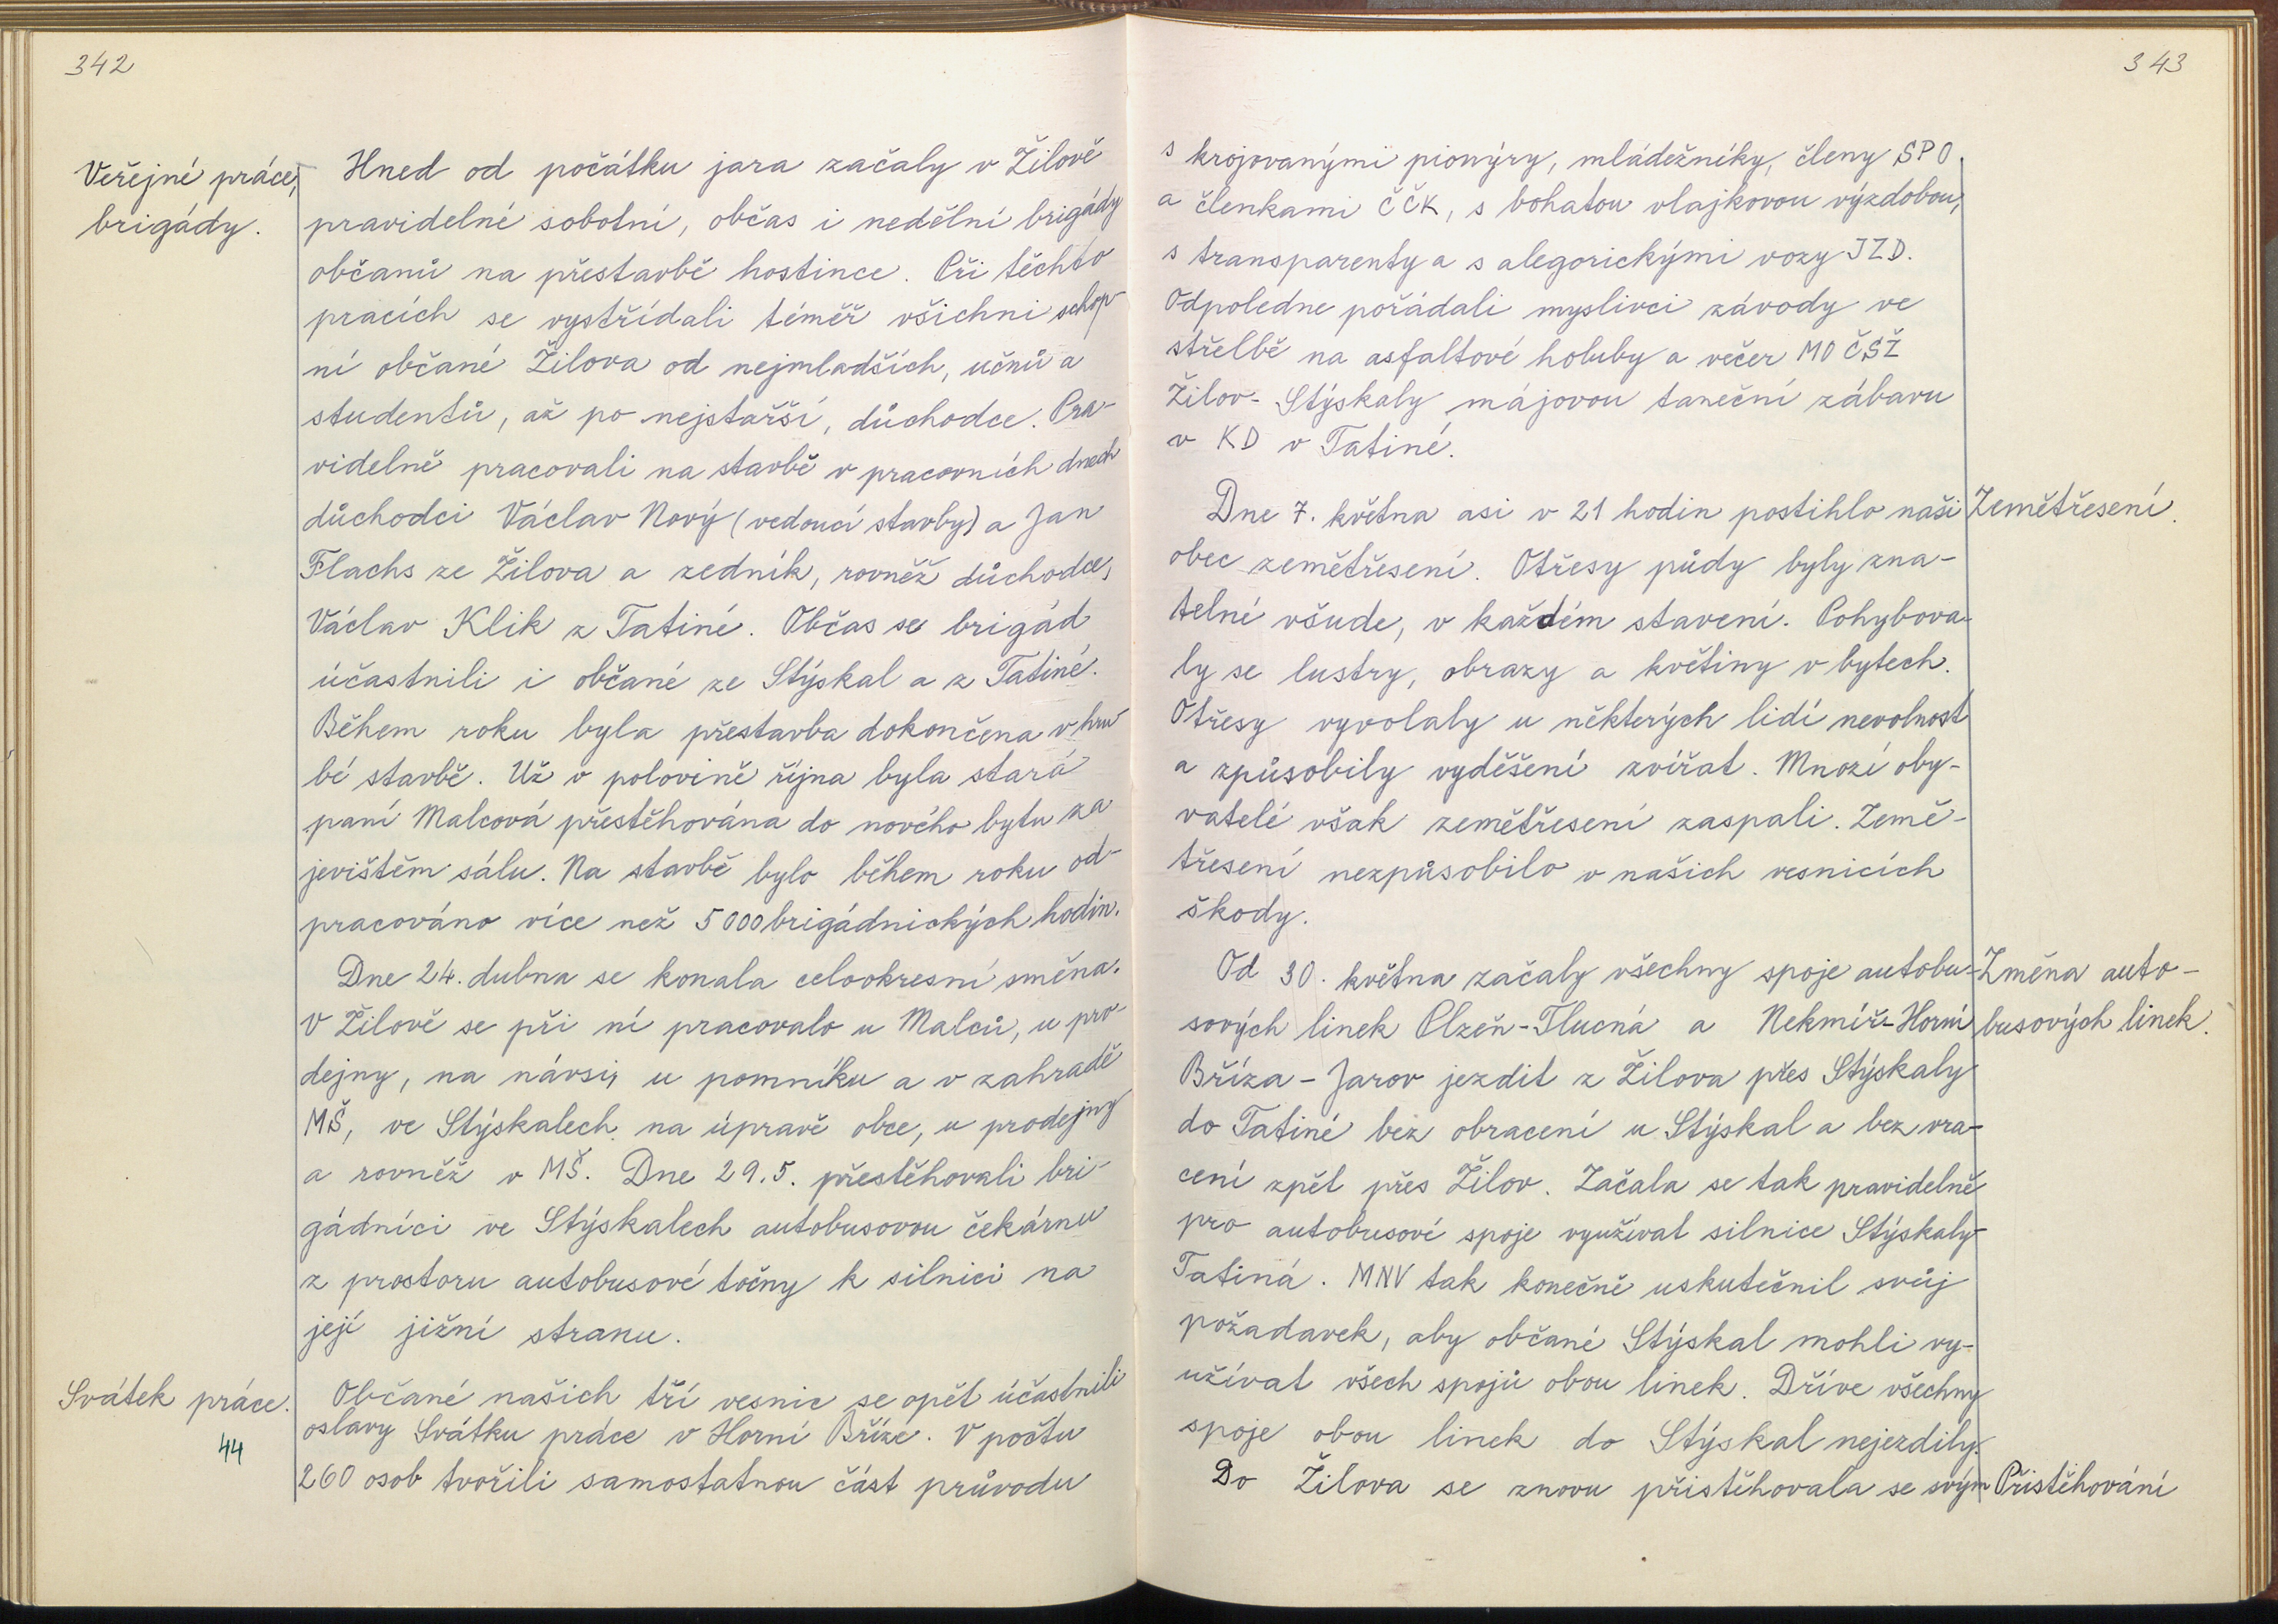 342
Veřejné práce,
brigády.
Hned od počátku jara začaly v Žilově
pravidelné sobotní, občas i nedělní brigády
občanů na přestavbě hostince. Při těchto
pracích se vystřídali téměř všichni schop-
ní občané Žilova od nejmladších, učňů a
studentů, až po nejstarší, důchodce. Pra-
videlně pracovali na stavbě v pracovních dnech
důchodci Václav Nový (vedoucí stavby) a Jan
Flachs ze Žilova a zedník, rovněž důchodce,
Václav Klik z Tatiné. Občas se brigád
účastnili i občané ze Stýskal a z Tatiné.
Během roku byla přestavba dokončena v hru-
bé stavbě. Už v polovině října byla stará
paní Malcová přestěhována do nového bytu za
jevištěm sálu. Na stavbě bylo během roku od-
pracováno více než 5000 brigádnických hodin.
Dne 24. dubna se konala celookresní směna.
V Žilově se při ní pracovalo u Malců, u pro-
dejny, na návsi, u pomníku a v zahradě
MŠ, ve Stýskalech na úpravě obce, u prodejny
a rovněž v MŠ. Dne 29.5. přestěhovali bri-
gádníci ve Stýskalech autobusovou čekárnu
z prostoru autobusové točny k silnici na
její jižní stranu.
Svátek práce.
44
Občané našich tří vesnic se opět účastnili
oslavy Svátku práce v Horní Bříze. V počtu
260 osob tvořili samostatnou část průvodu
343
s krojovanými pionýry, mládežníky, členy SPO
a členkami ČČK, s bohatou vlajkovou výzdobou,
s transparenty a s alegorickými vozy JZD.
Odpoledne pořádali myslivci závody ve
střelbě na asfaltové holuby a večer MO ČSŽ
Žilov-Stýskaly májovou taneční zábavu
v KD v Tatiné.
Dne 7. května asi v 21 hodin postihlo naši
Zemětřesení.
obec zemětřesení. Otřesy půdy byly zna-
telné všude, v každém stavení. Pohybova-
ly se lustry, obrazy a květiny v bytech.
Otřesy vyvolaly u některých lidí nevolnost
a způsobily vyděšení zvířat. Mnozí oby-
vatelé však zemětřesení zaspali. Země-
třesení nezpůsobilo v našich vesnicích
škody.
Od 30. května začaly všechny spoje autobu-
Změna auto-
sových linek Plzeň-Tlucná a Nekmíř-Horní
busových linek.
Bříza-Jarov jezdit z Žilova přes Stýskaly
do Tatiné bez obracení u Stýskal a bez vra-
cení zpět přes Žilov. Začala se tak pravidelně
pro autobusové spoje využívat silnice Stýskaly-
Tatiná. MNV tak konečně uskutečnil svůj
požadavek, aby občané Stýskal mohli vy-
užívat všech spojů obou linek. Dříve všechny
spoje obou linek do Stýskal nejezdily.
Do Žilova se znovu přistěhovala se svým
Přistěhování